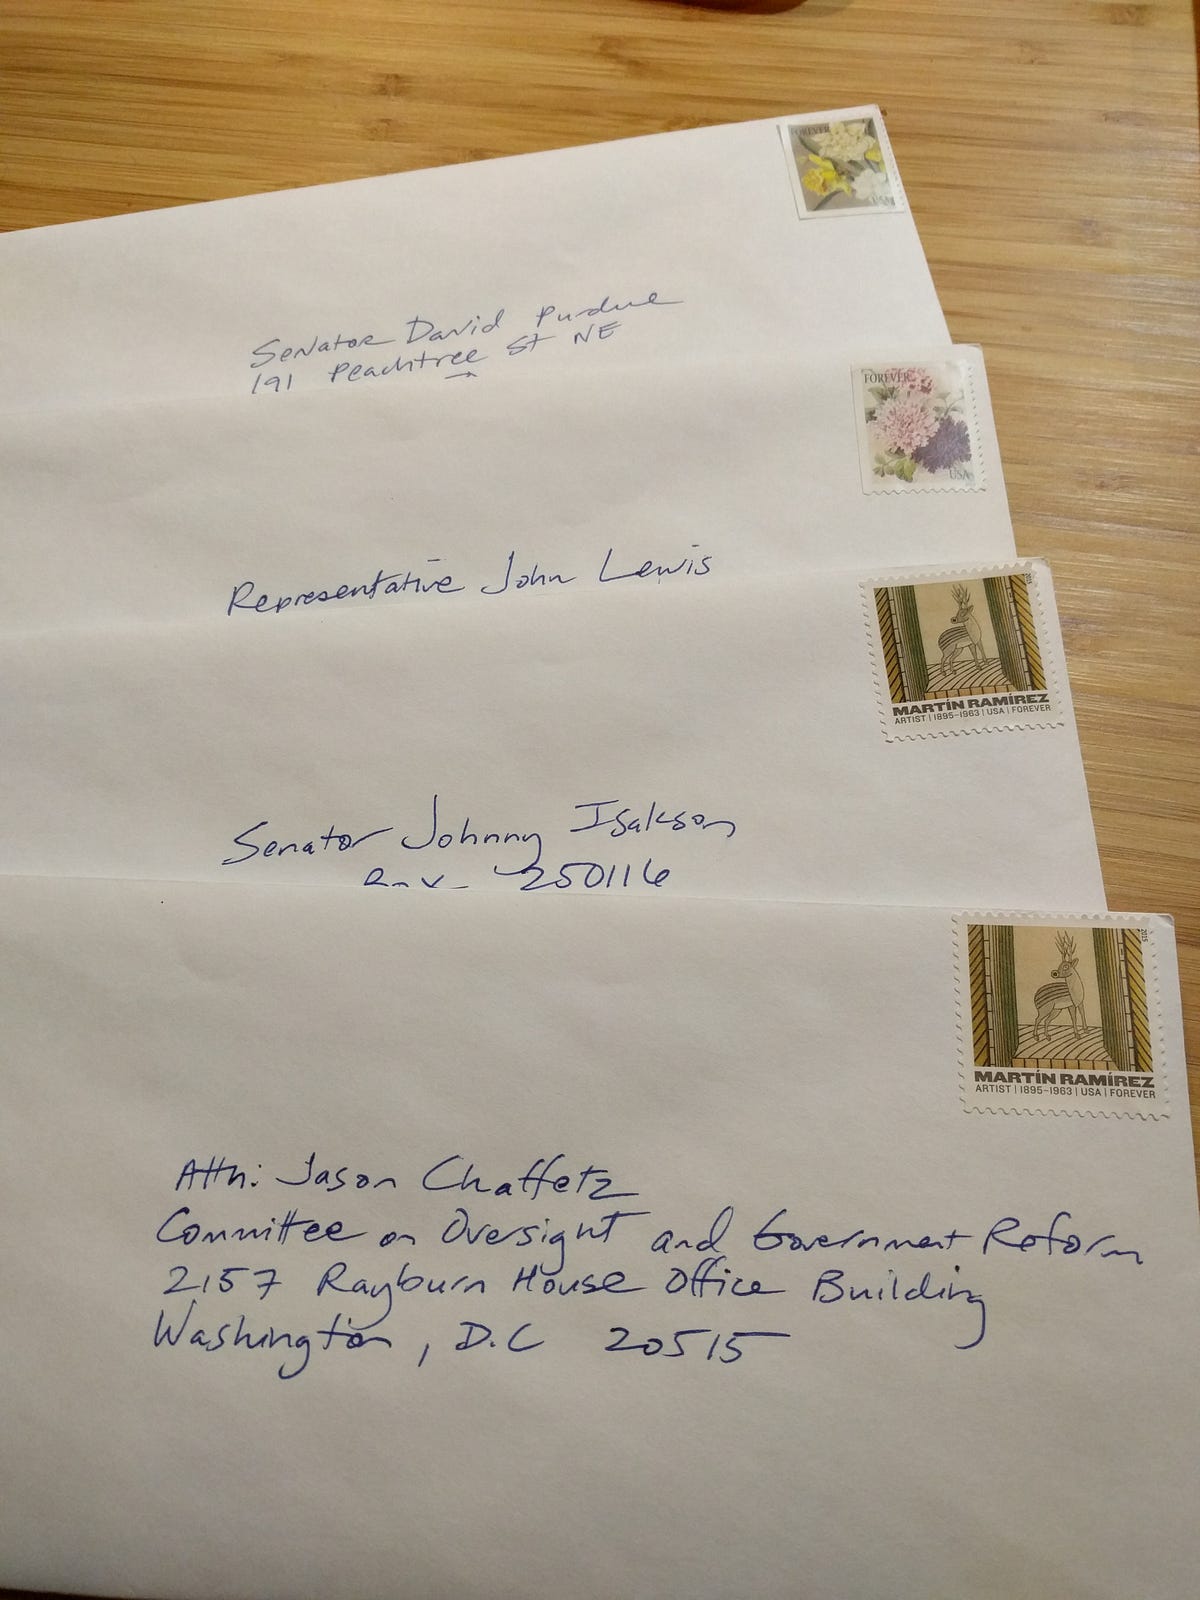 FOREVER
USA
Senator David Purdue
191 Peachtree St NE
FOREVER
USA
Representative John Lewis
2015
MARTÍN RAMÍREZ
ARTIST | 1895–1963 | USA | FOREVER
Senator Johnny Isakson
250116
2015
MARTÍN RAMÍREZ
ARTIST | 1895–1963 | USA | FOREVER
Attn: Jason Chaffetz
Committee on Oversight and Government Reform
2157 Rayburn House Office Building
Washington, D.C 20515